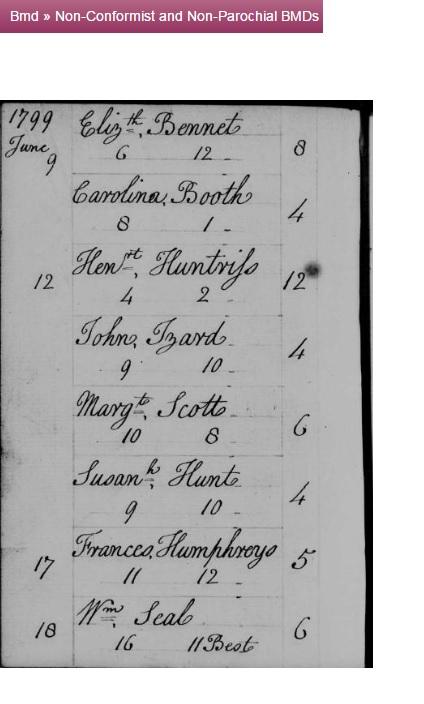 Bmd » Non-Conformist and Non-Parochial BMDs
1799 Elizth, Bennet
June 9 6 12 - 8
Carolina, Booth
8 1 - 4
12 Henrt, Huntriss 12
4 2 -
John, Izard
9 10 - 4
Margt, Scott
10 8 - 6
Susanh, Hunt
9 10 - 4
17 Frances, Humphreys 5
11 12 -
Wm, Seal
18 16 11 Best 6